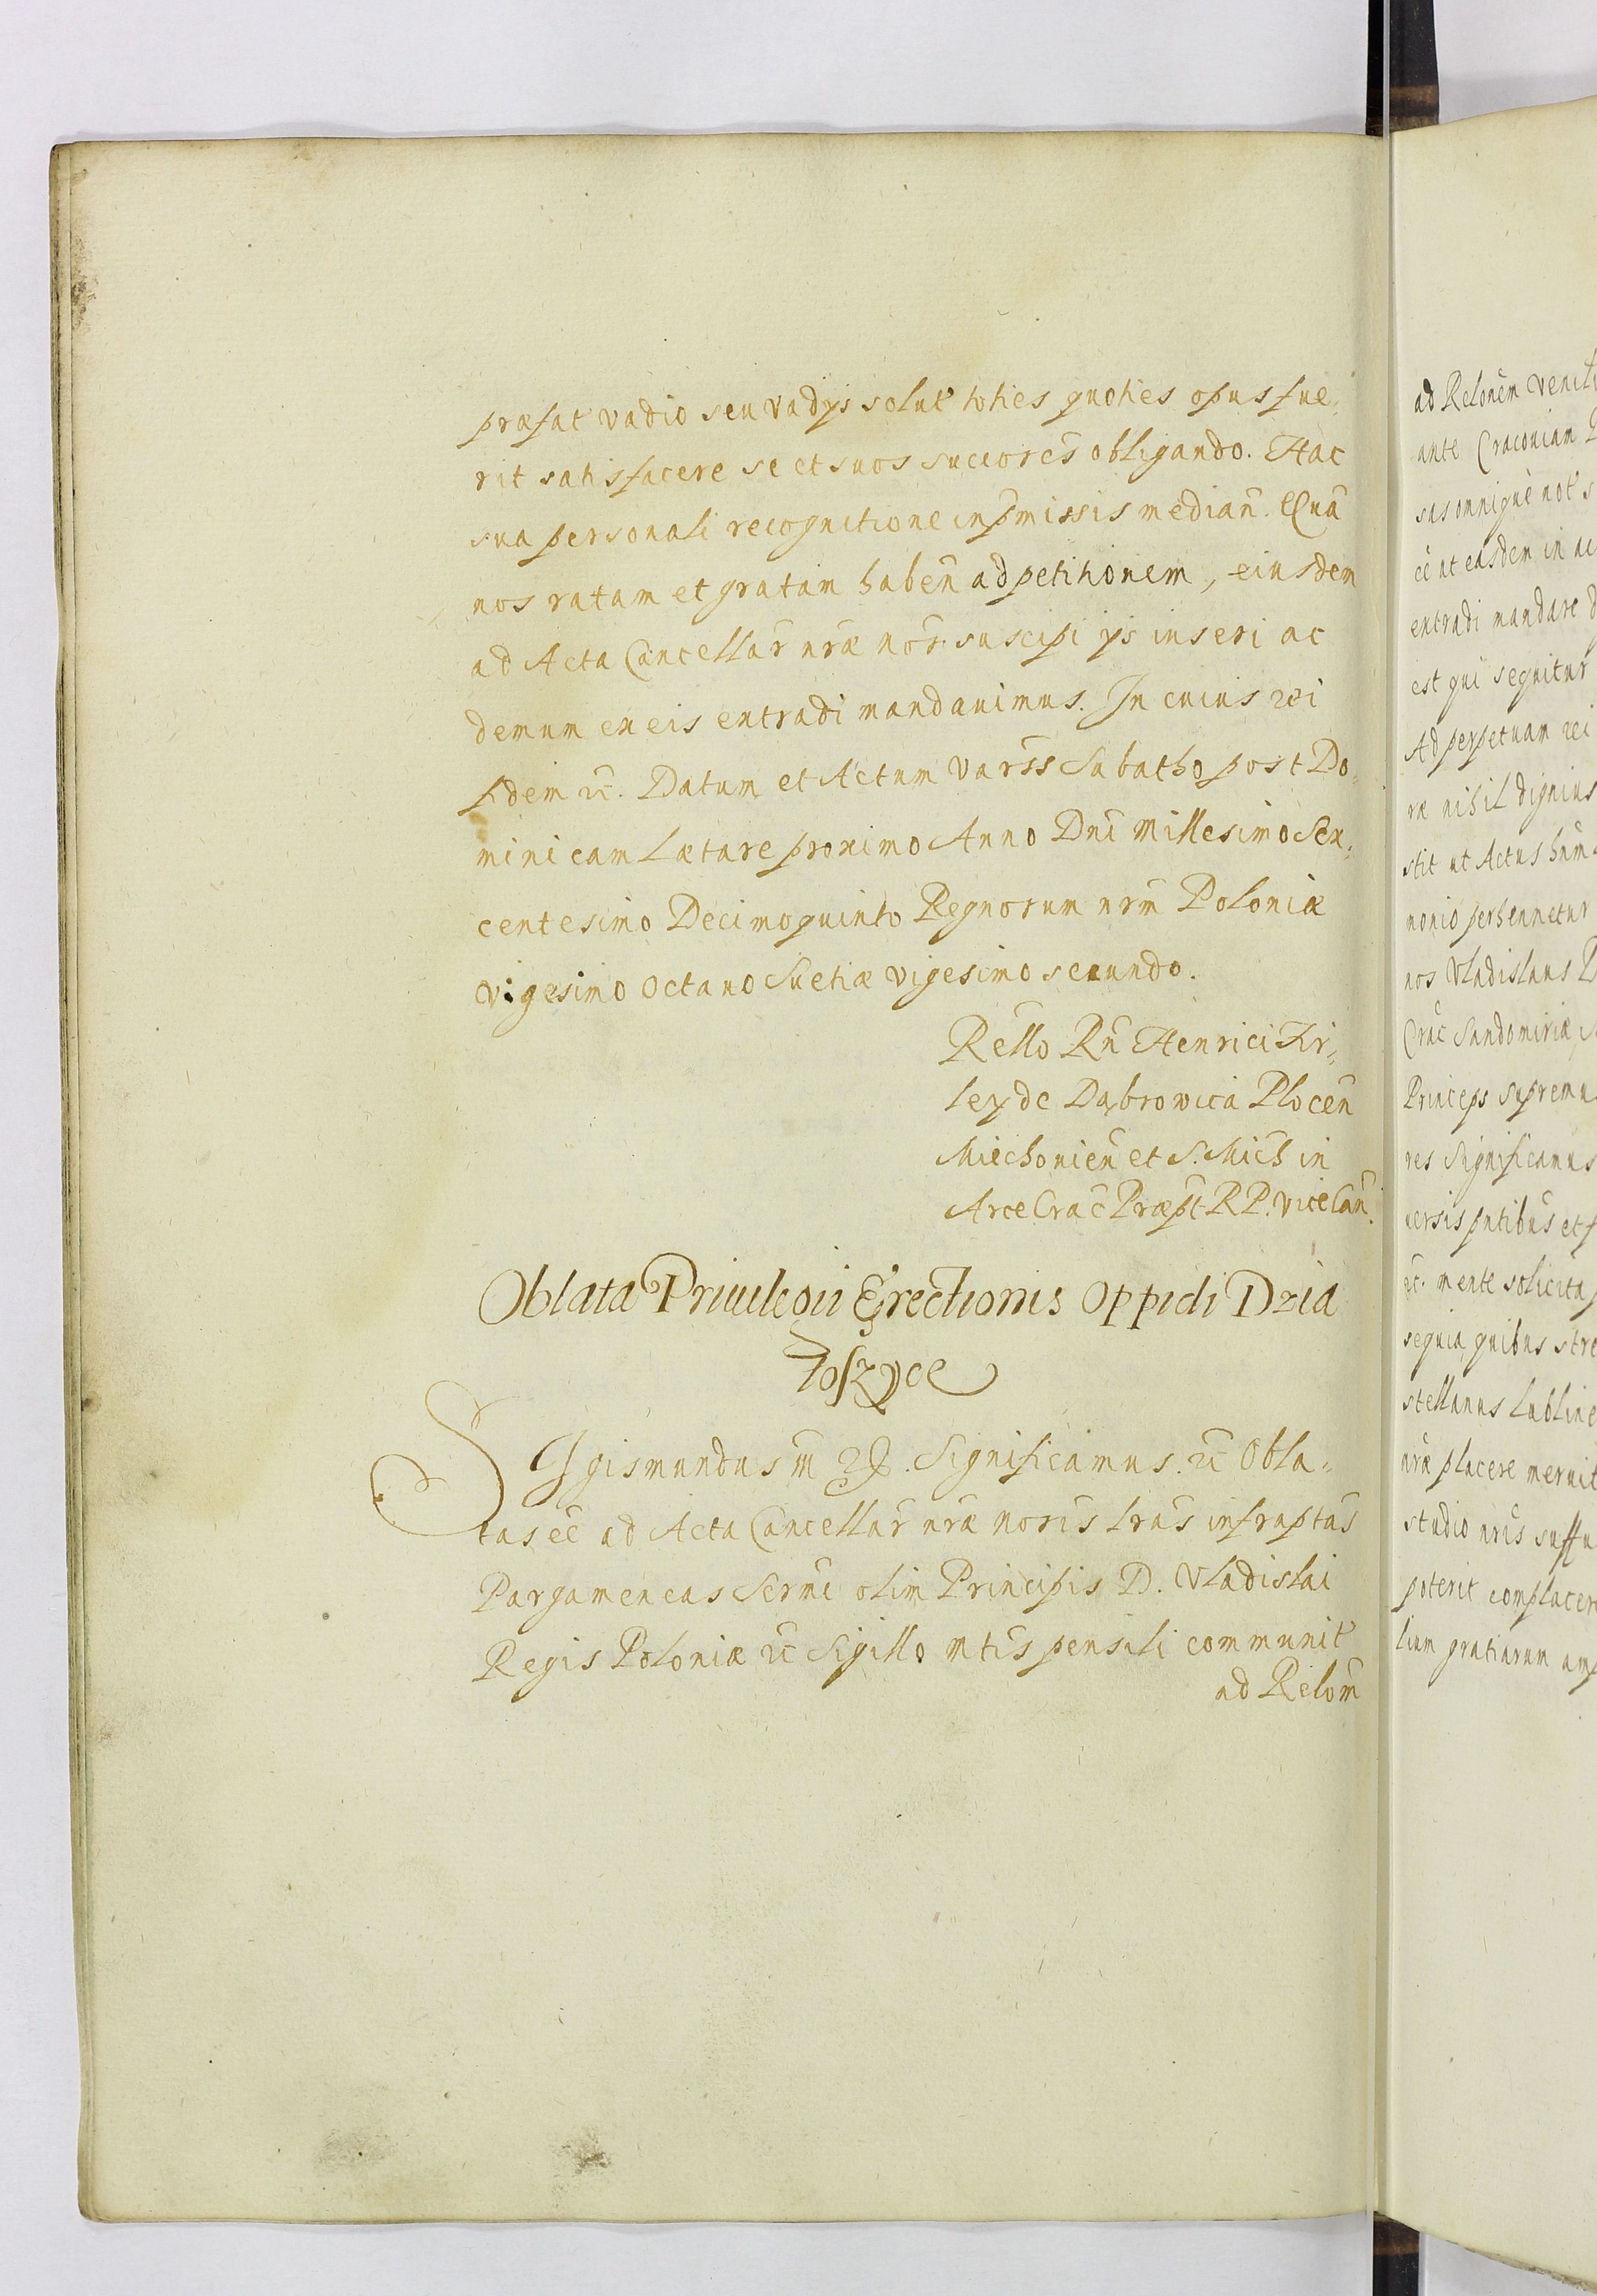 præfat vadio seu vadÿs solut toties quoties opus fue,
rit satisfacere se et suos succores obligando. Hac
sua personali recognitione in pmissis median. Qua
nos ratam et gratam haben ad petitionem, eiusdem
ad Acta Cancellar nræ nor suscipi ÿs inseri ac
demum ex eis extradi mandauimus. In cuius rei
fidem &c. Datum et Actum Varss Sabatho post Do,
minicam Lætare proximo Anno Dni Millesimo Sex,
centesimo Decimoquinto Regnorum nrm Poloniæ
vigesimo octauo Suetiæ vigesimo secundo.
Rello Rn Henrici Fir,
ley de Dąbrowica Plocen
Miechouien et S. Mich in
Arce Crac Præpt R P. ViceCan.
Oblata Priuilegii Erectionis Oppidi Dzia
łoszyce
SIgismundus III &. Significamus. &c Obla,
tas ee ad Acta Cancellar nræ noris lras infraptas
Pargameneas Sermi olim Principis D. Vladislai
Regis Poloniæ &c Sigillo Mtis pensili communit
ad Relom
ad Relonem
ante Cracouiam
sas omnique not s
ee ut easdem in ac
extradi mandare
est qui sequitur
Ad perpetuam rei
ræ nihil dignius
stit ut Actus hum
monio perhennetur
nos Vladislaus
Crac Sandomiriæ
Princeps supremu
res Significamus
uersis pntibus et f
&c. mente solicita
sequia, quibus stre
stellanus Lubline
nræ placere meruit
studio nris suffu
poterit complacere
lium gratiarum amp